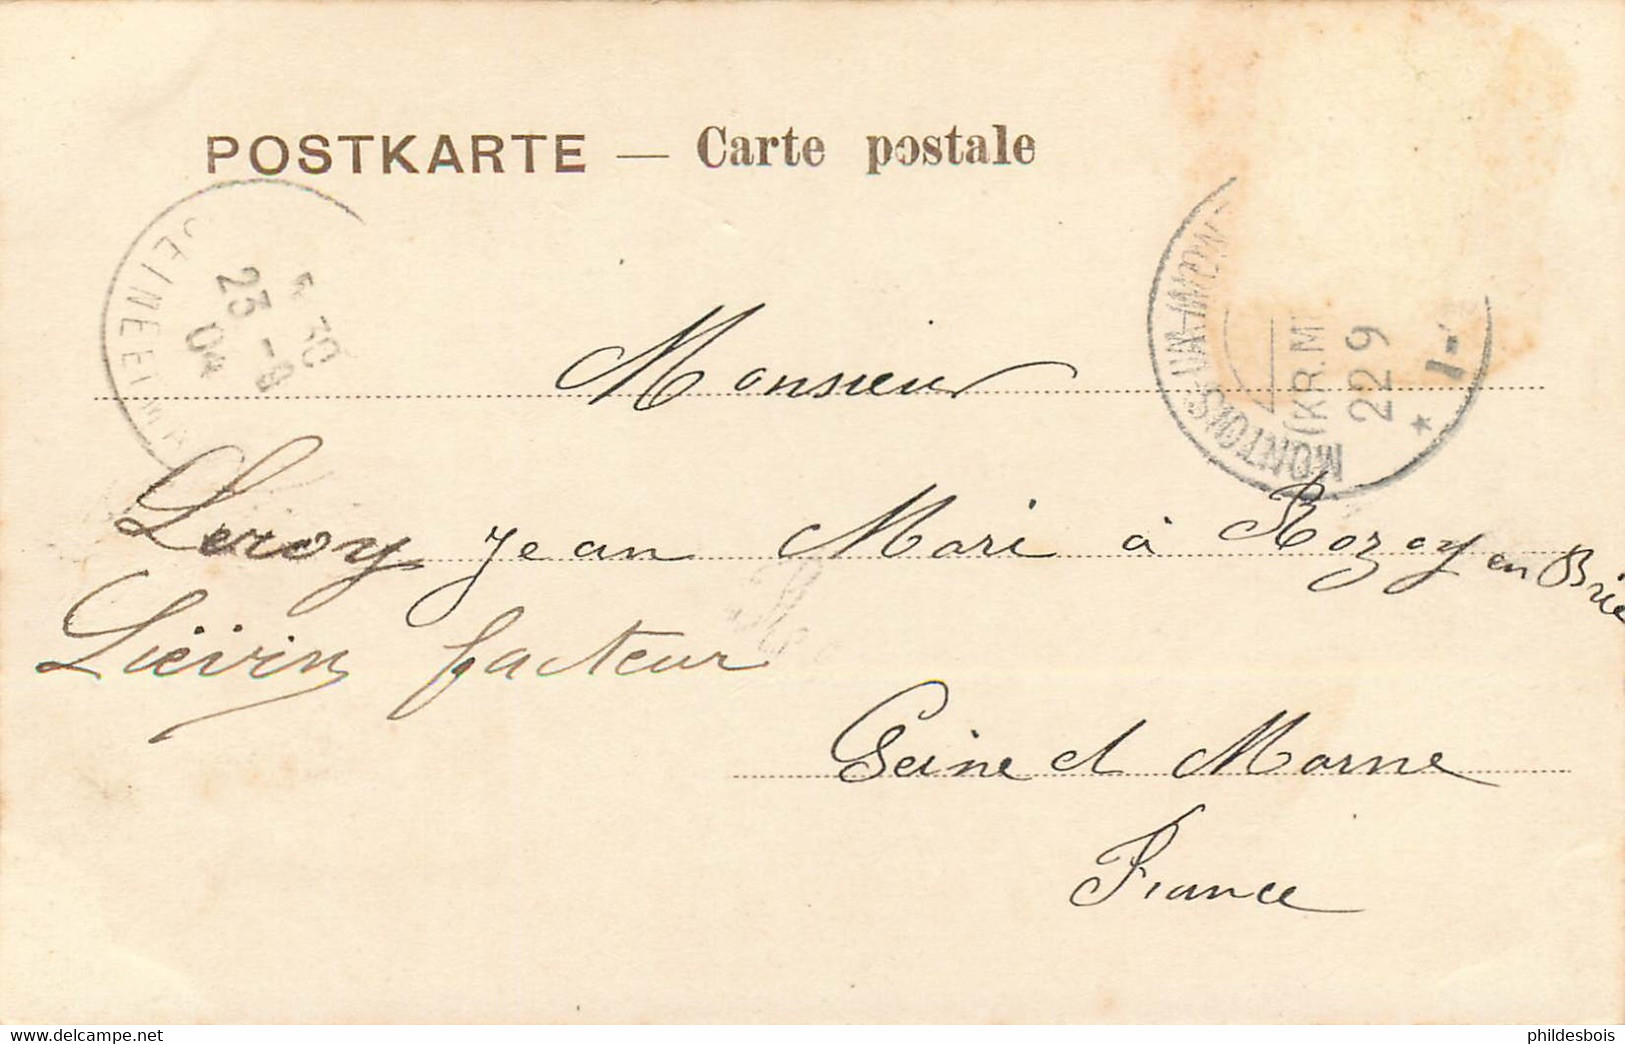 POSTKARTE — Carte postale
SEINE ET MA
30
23 - 9
04
MONTOIS
(KR.M
22 9
Monsieur
Leroy Jean Mari à Rozoy en Brie
Liévin facteur
Seine et Marne
France
delcampe.net
phildesbois